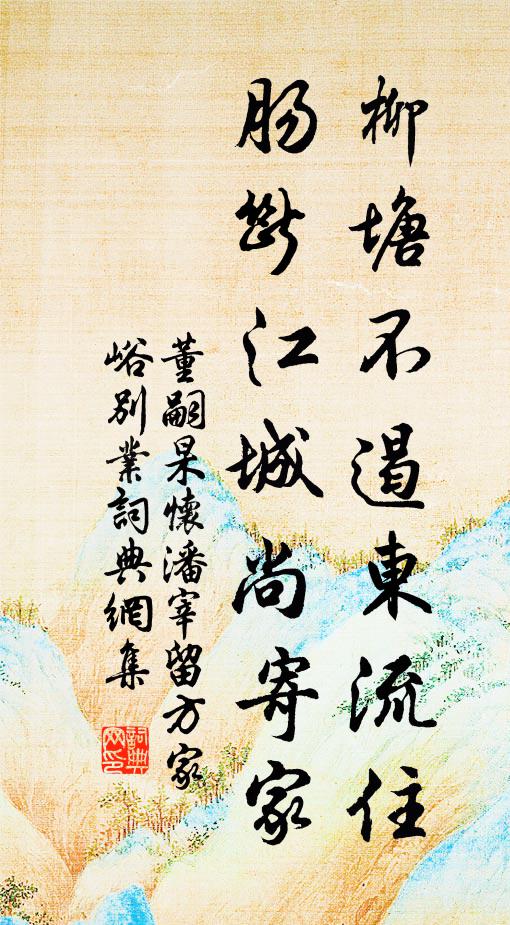 柳塘不遏東流住
腸斷江城尚寄家
董嗣杲懷潘宰留方家
峪別業詞典網集
詞典網印